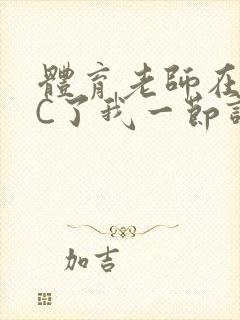 體育老師在
C了我一節
加吉